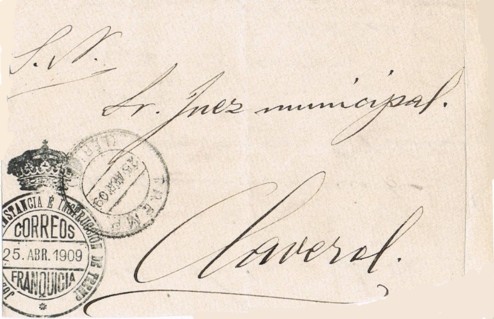 S. N.
Sr. Juez municipal.
Claverol.
TREMP
25 ABR 09
INSTANCIA É INSTRUCCION DE TREMP
CORREOS
25. ABR. 1909
FRANQUICIA